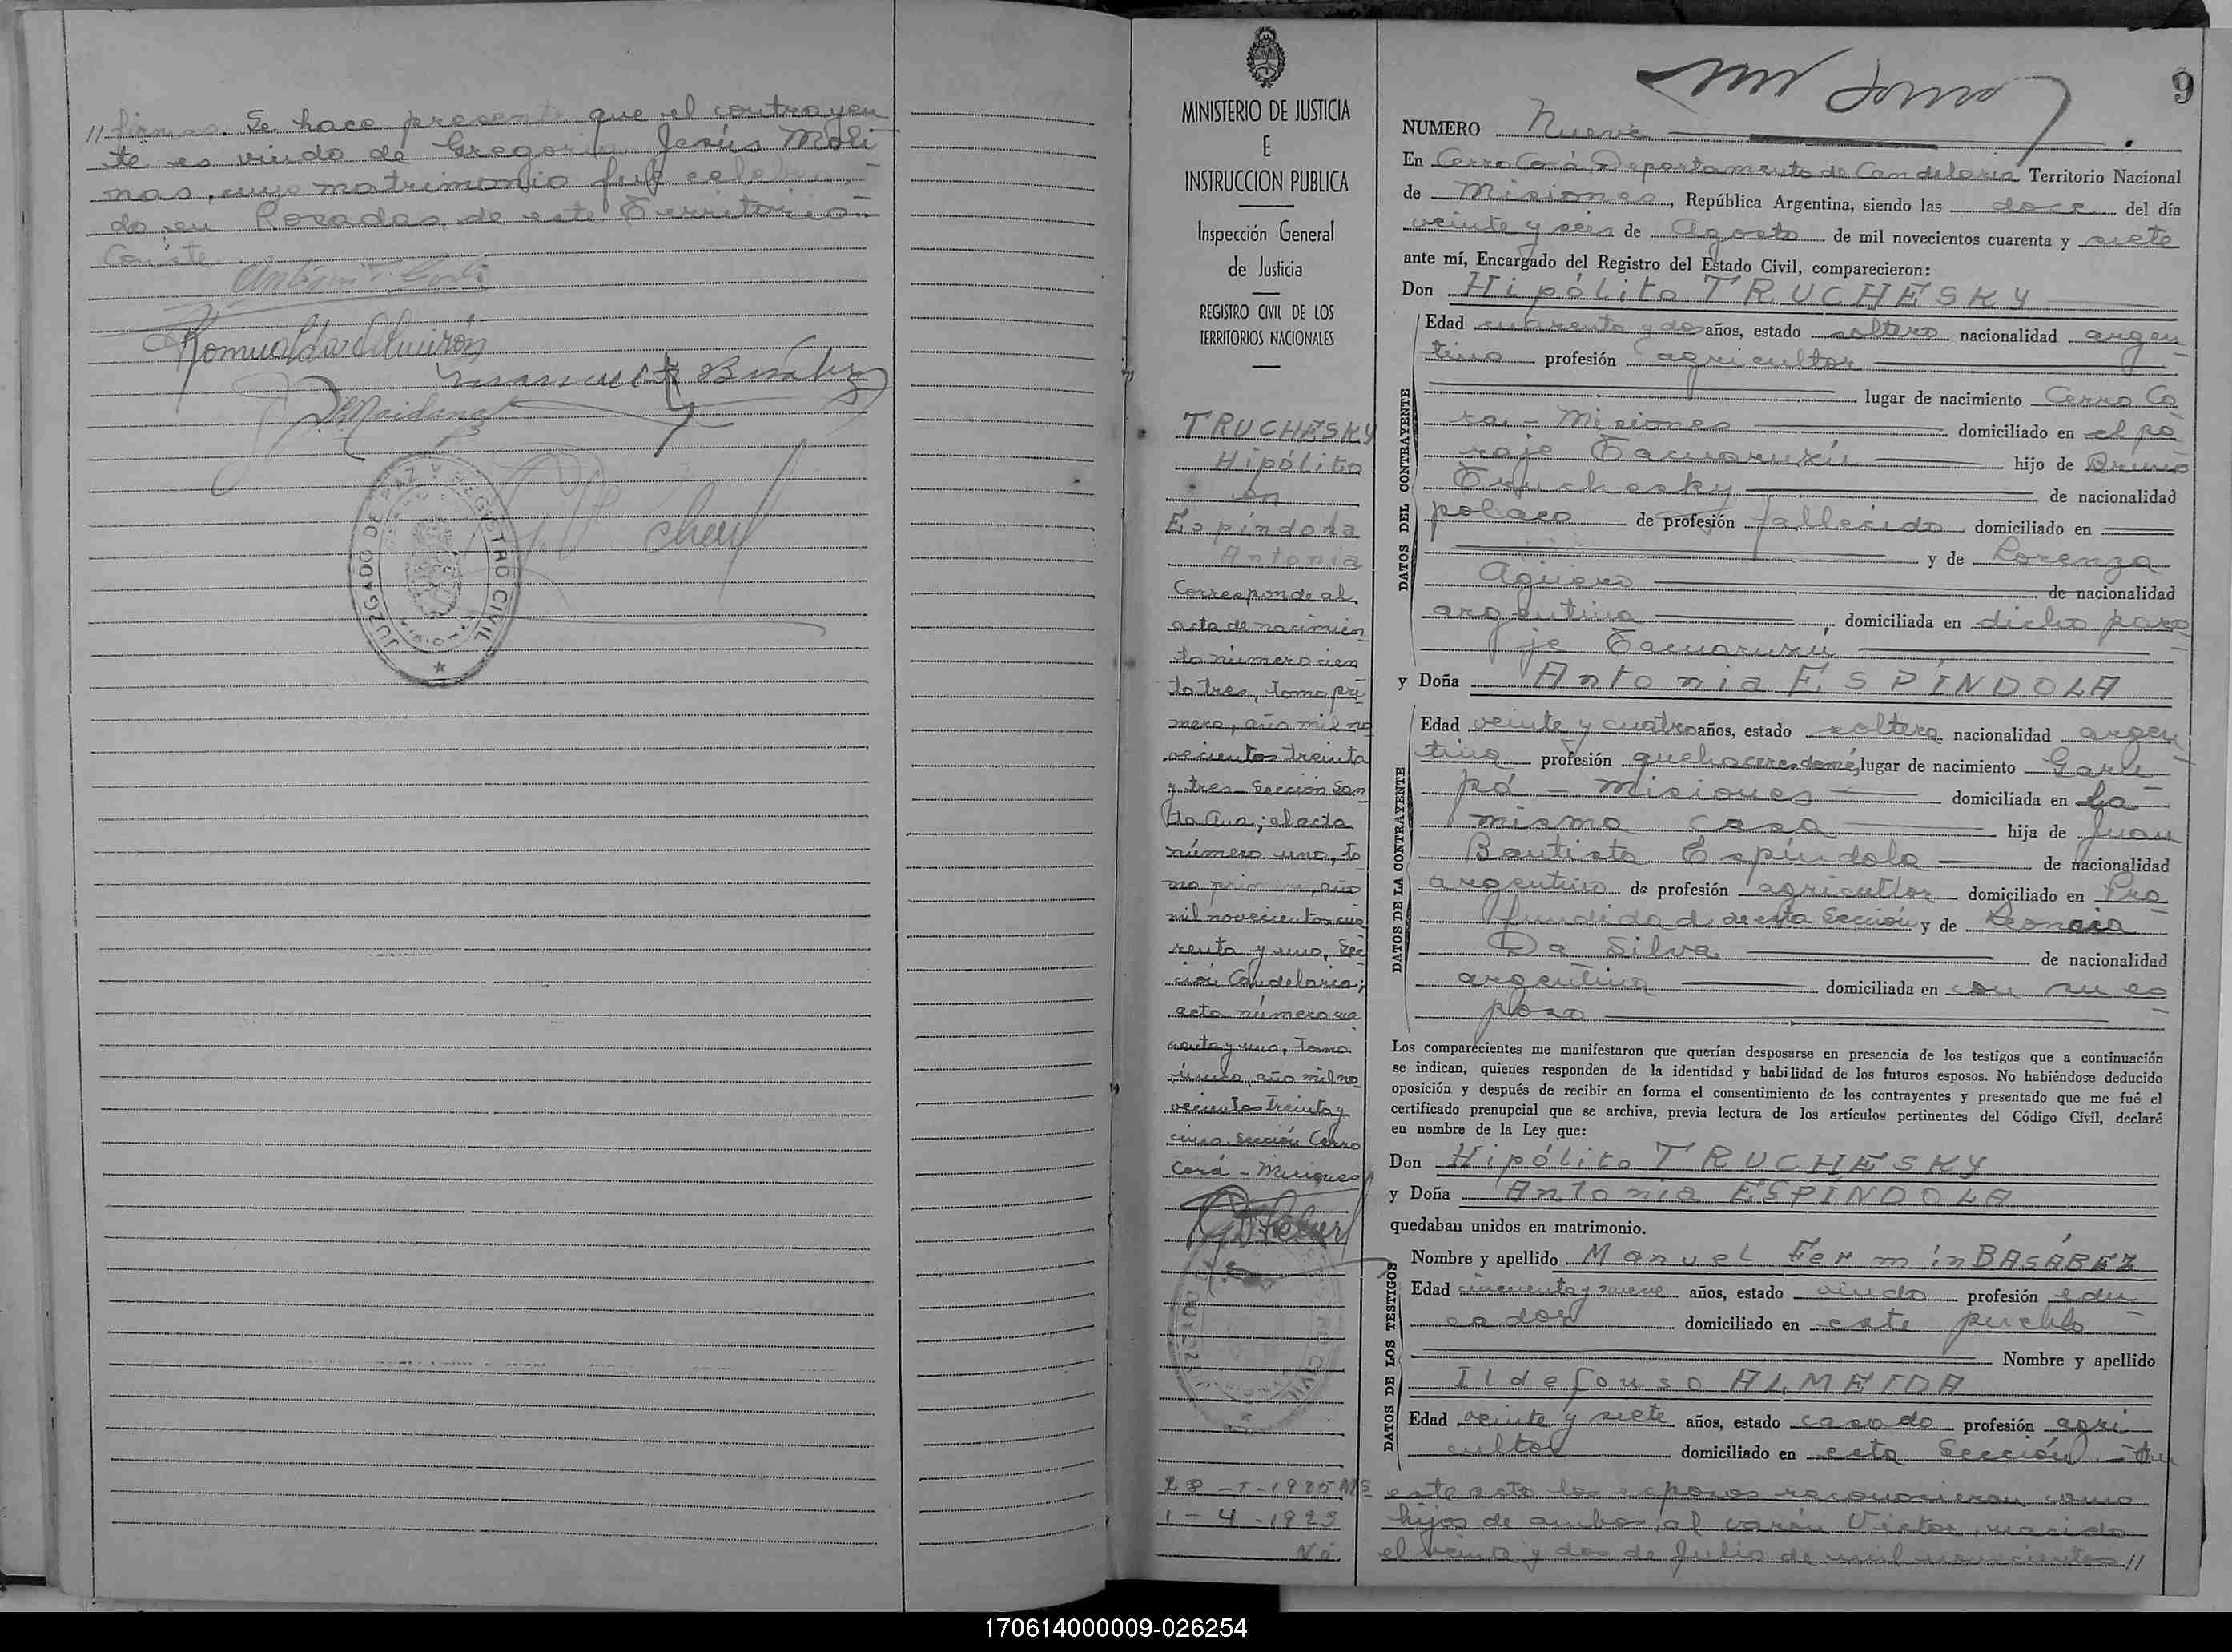 // firmas. Se hace presente que el contrayen
te es viudo de Gregoria Jesús Moli
nas, cuyo matrimonio fue celebra
do en Posadas, de este Territorio
Conste
Romualda
JUZGADO DE PAZ Y REGISTRO CIVIL
9
MINISTERIO DE JUSTICIA
E
INSTRUCCION PUBLICA
Inspección General
de Justicia
REGISTRO CIVIL DE LOS
TERRITORIOS NACIONALES
TRUCHESKY
Hipólito
con
Espíndola
Antonia
Corresponde al
acta de nacimien
to número cien
to tres, tomo pri
mero, año mil no
vecientos treinta
y tres Sección San
ta Ana; el acta
número uno, to
mo primero, año
mil novecientos cua
renta y uno, Sec
ción Candelaria;
acta número cua
renta y uno, Tomo
único, año mil no
vecientos treinta y
cinco Sección Cerro
Corá - Misiones
NUMERO Nueve
En Cerro Corá, Departamento de Candelaria Territorio Nacional
de Misiones, República Argentina, siendo las doce del día
veinte y seis de Agosto de mil novecientos cuarenta y siete
ante mí, Encargado del Registro del Estado Civil, comparecieron:
Don Hipólito TRUCHESKY
DATOS DEL CONTRAYENTE
Edad cuarenta y dos años, estado soltero nacionalidad argen
tino profesión agricultor
lugar de nacimiento Cerro Co
rá - Misiones domiciliado en el pa
raje Tacuaruzú hijo de Bruno
Truchesky de nacionalidad
polaco de profesión fallecido domiciliado en
y de Lorenza
Agüero de nacionalidad
argentina, domiciliada en dicho para
je Tacuaruzú
y Doña Antonia ESPÍNDOLA
DATOS DE LA CONTRAYENTE
Edad veinte y cuatro años, estado soltera nacionalidad argen
tina profesión quehaceres domés, lugar de nacimiento Garu
pá - Misiones domiciliada en la
misma casa hija de Juan
Bautista Espíndola de nacionalidad
argentino de profesión agricultor domiciliado en Pro
fundidad de esta Sección y de Leoncia
Da Silva de nacionalidad
argentina domiciliada en con su es
poso
Los comparecientes me manifestaron que querían desposarse en presencia de los testigos que a continuación
se indican, quienes responden de la identidad y habilidad de los futuros esposos. No habiéndose deducido
oposición y después de recibir en forma el consentimiento de los contrayentes y presentado que me fué el
certificado prenupcial que se archiva, previa lectura de los artículos pertinentes del Código Civil, declaré
en nombre de la Ley que:
Don Hipólito TRUCHESKY
y Doña Antonia ESPÍNDOLA
quedaban unidos en matrimonio.
DATOS DE LOS TESTIGOS
Nombre y apellido Manuel Fermin BASÁBEZ
Edad cincuenta y nueve años, estado viudo profesión edu
cador domiciliado en este pueblo
Nombre y apellido
Ildefonso ALMEIDA
Edad veinte y siete años, estado casado profesión agri
cultor domiciliado en esta Sección - En
este acto los esposos reconocieron como
hijos de ambos, al varón Victor, nacido
el veinte y dos de Julio de mil novecientos //
170614000009-026254